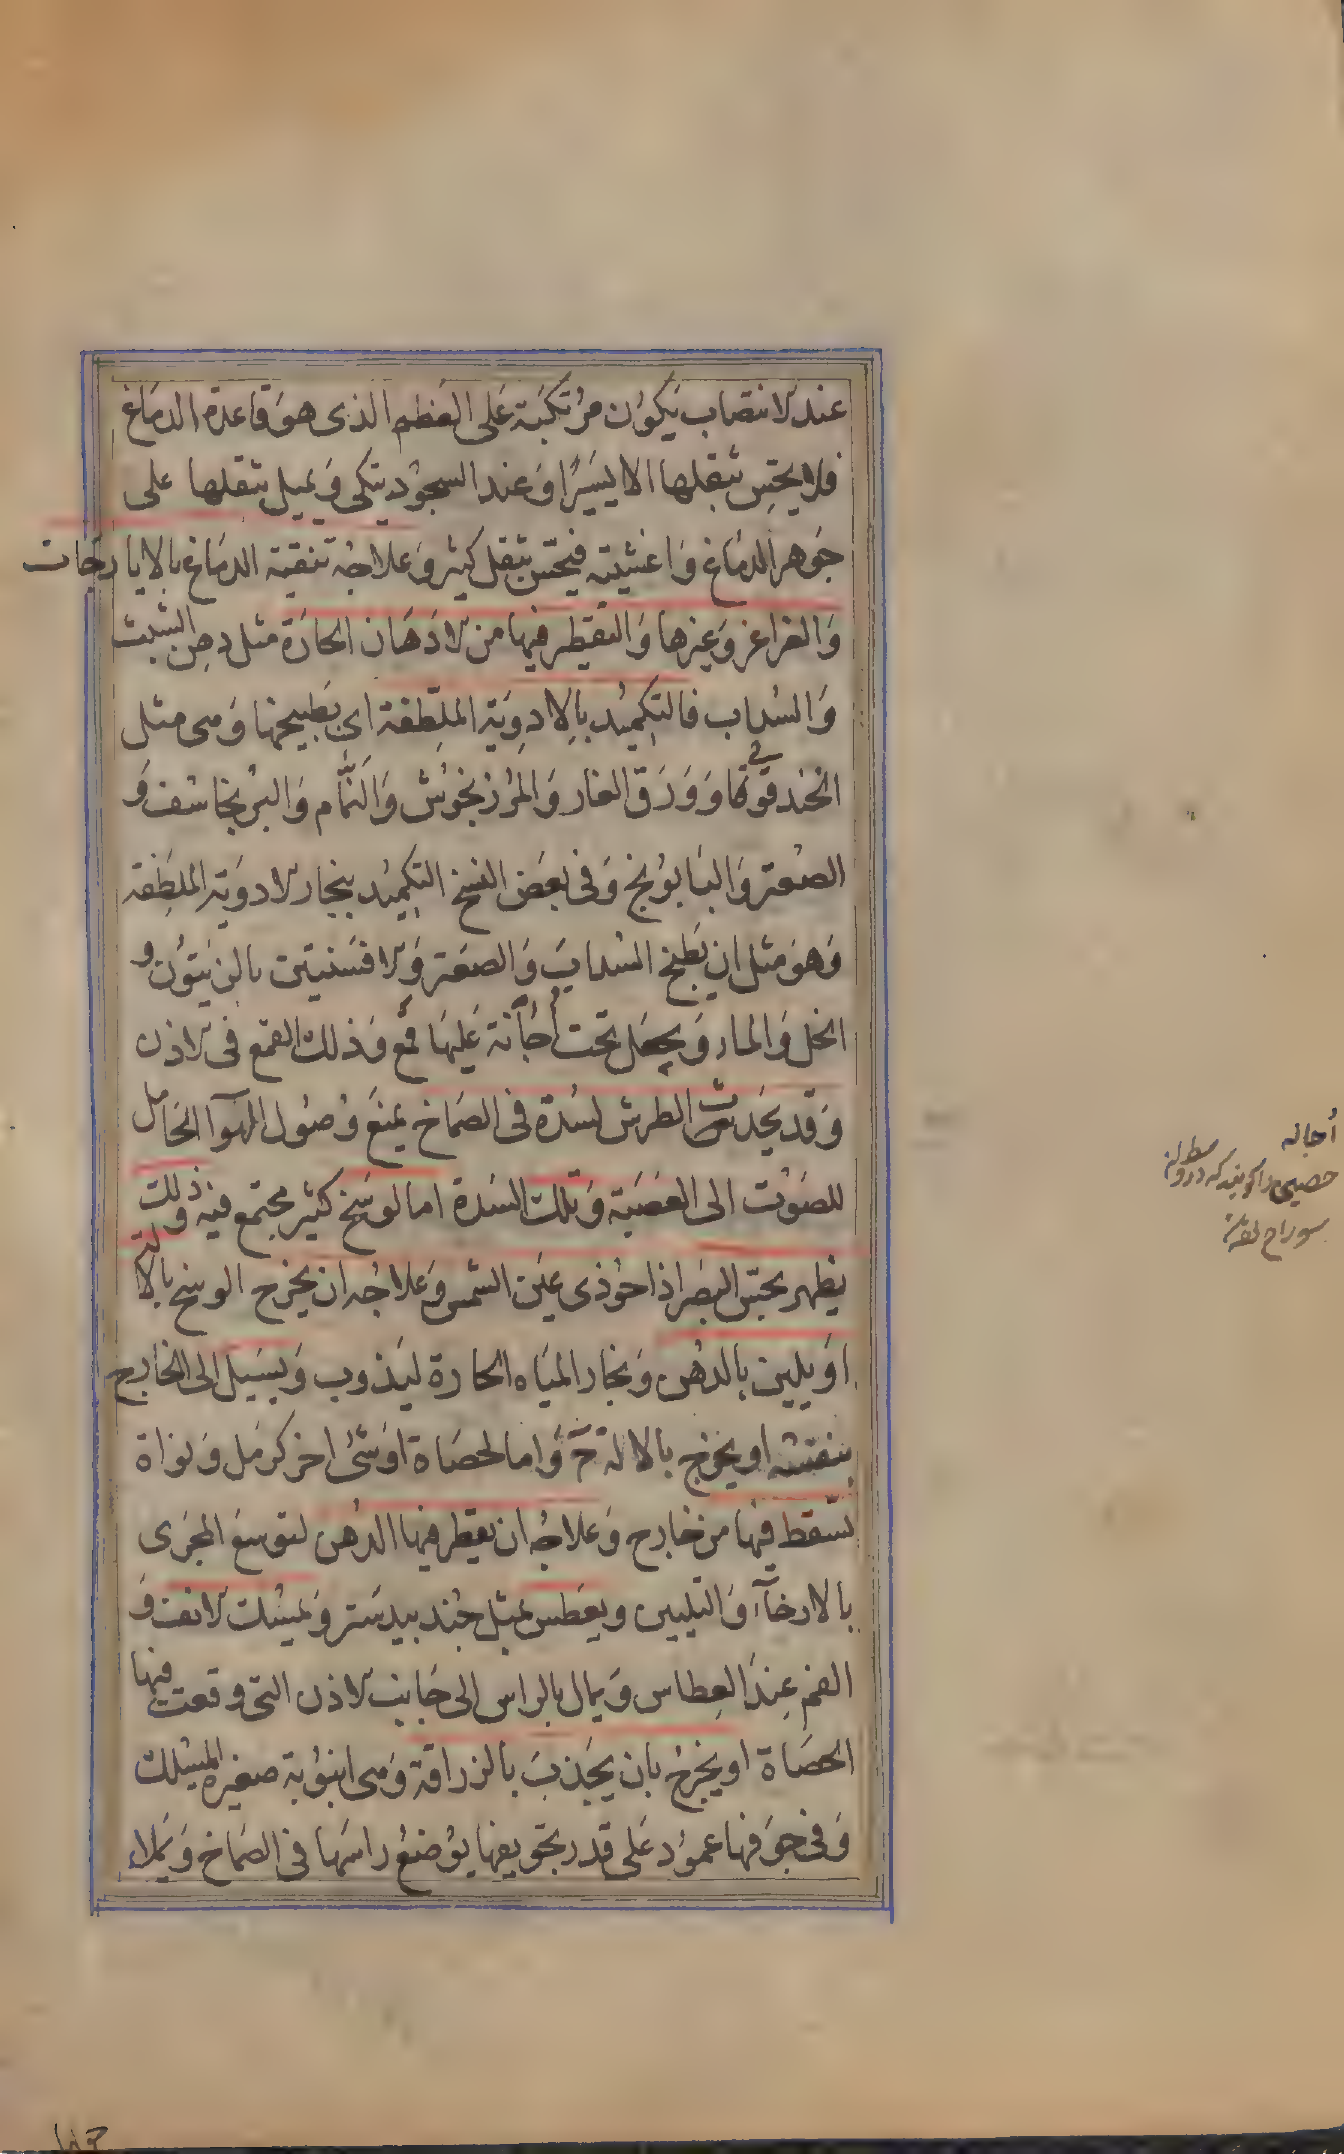 عند الانتصاب يكون مرتكبة على العظم الذى هو قاعدة الدماغ
فلا يحس بثقلها الا يسيرا وعند السجود يتكى ويميل بثقلها على
جوهر الدماغ واغشيته فيحس بثقل كثير وعلاجه تنقية الدماغ بالايارجات
والغراغر وغيرها والتقطير فيها من الادهان الحارة مثل دهن الشبث
والسداب فالتكميد بالادوية الملطفة اى بطبيخها وهى مثل
الحندقوقا وورق الغار والمرزنجوش والنمام والبرنجاسف و
الصعتر والبابونج وفى بعض النسخ التكميد ببخار الادوية الملطفه
وهو مثل ان يطبخ السداب والصعتر والافسنتين بالزيتون و
الخل والماء ويجعل تحت اجانة عليها قمع وذلك القمع فى الاذن
وقد يحدث الطرش لسدة فى الصماخ يمنع وصول الهوآ الحامل
للصوت الى العصبة وتلك السدة اما لوسخ كثير مجتمع فيه وذلك
يظهر بحس البصر اذا حوذى عين الشمس وعلاجه ان يخرج الوسخ بالالة
او يلين بالدهن وبخار المياه الحارة ليذوب ويسيل الى الخارج
بنفسه او يخرج بالالة ح واما لحصاة او شئ اخر كرمل ونواة
تسقط فيها من خارج وعلاجه ان يقطر فيها الدهن لتوسع المجرى
بالارخآء والتليين ويعطس بمثل جندبيدستر ويمسك الانف و
الفم عند العطاس ويمال بالراس الى جانب الاذن التى وقعت فيها
الحصاة او يخرج بان يجذب بالزراقة وهى انبوبة صغيرة المسلك
وفى جوفها عمود على قدر تجويفها يوضع راسها فى الصماخ ويملاء
اجاله
سوراخ